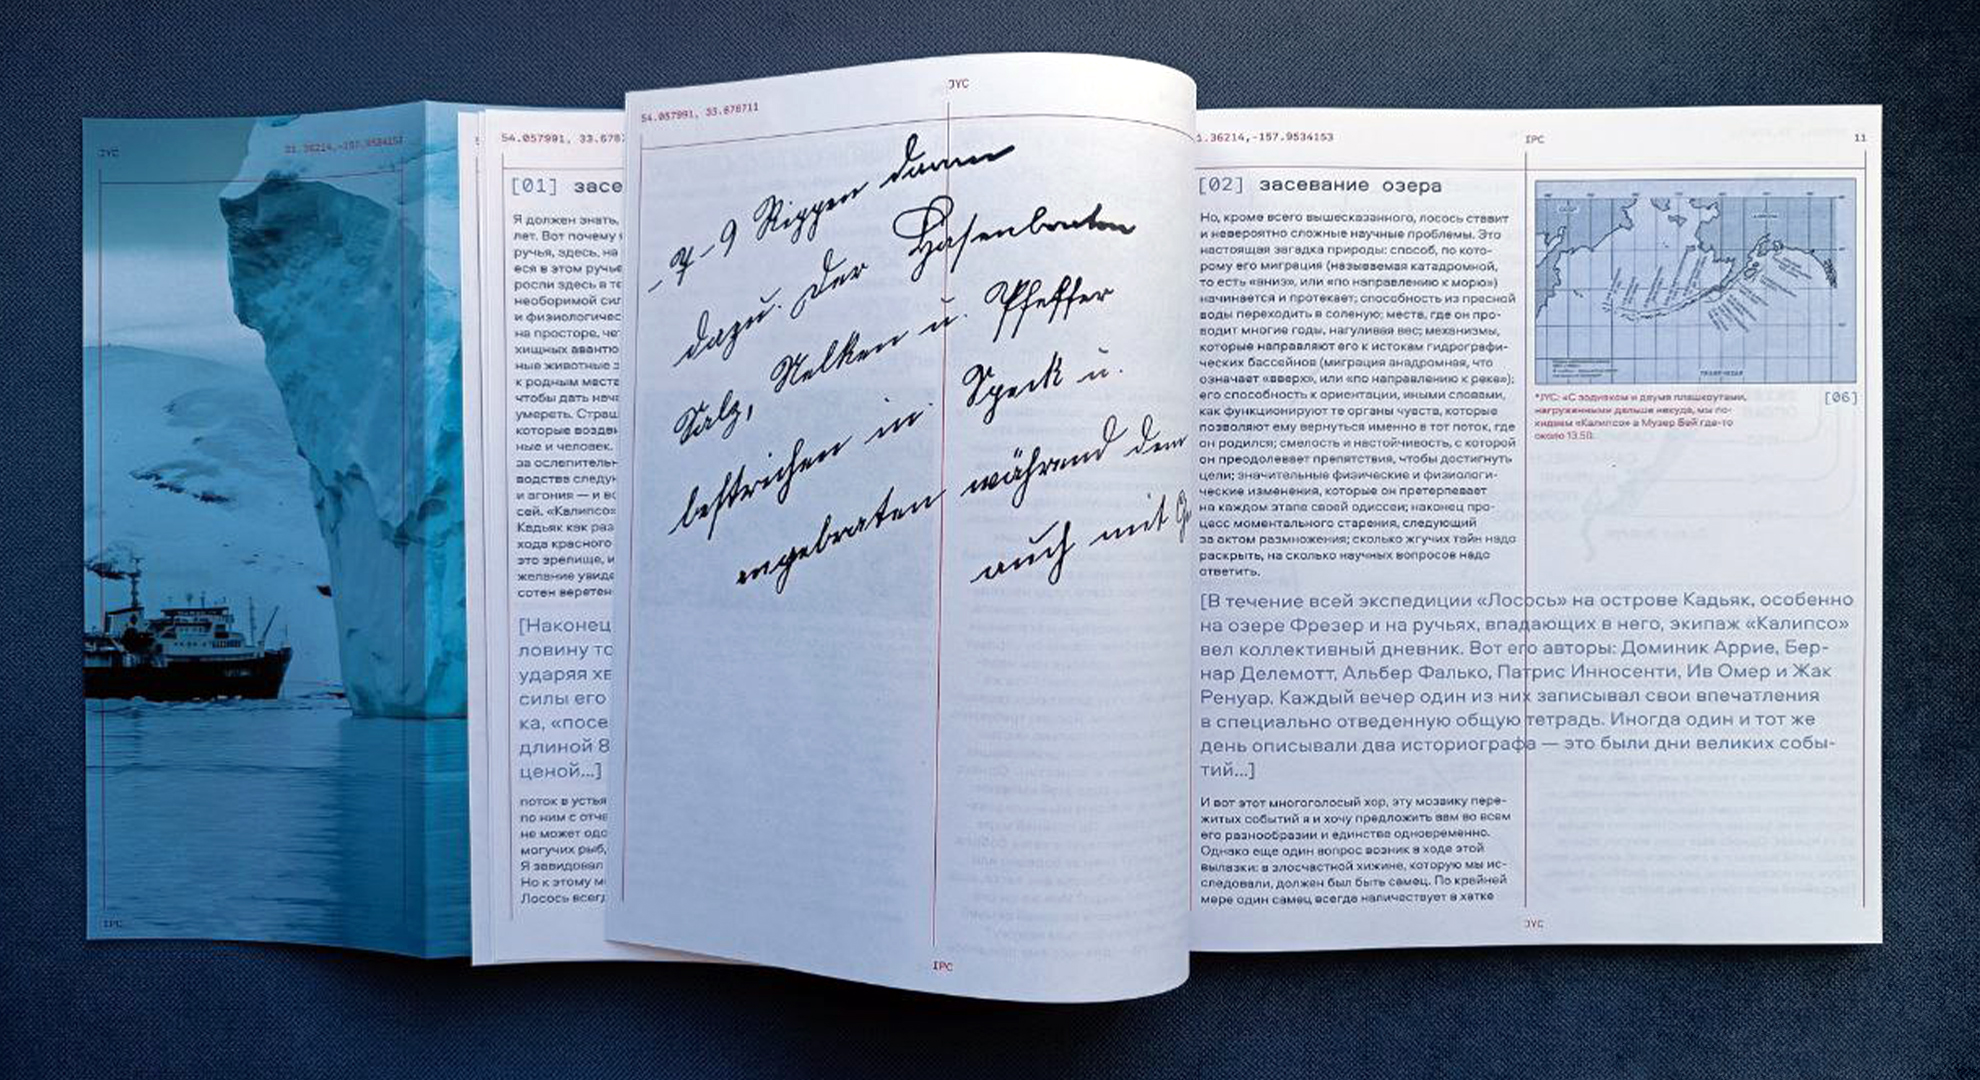 JYC
31.36214,-157.9534153
IPC
54.057991, 33.678
[01] засе
Я должен знать,
лет. Вот почему
ручья, здесь, на
еся в этом ручье
росли здесь в те
необоримой сил
и физиологичес
на просторе, че
хищных аванто
ные животные з
к родным места
чтобы дать нача
умереть. Страш
которые воздви
ные и человек.
за ослепительн
водства следую
и агония — и во
сей. «Калипсо»
Кадьяк как раз
хода красного
это зрелище, и
желание увиде
сотен веретен
[Наконец
ловину то
ударяя хв
силы его
ка, «посе
длиной 8
ценой...]
поток в устья
по ним с отче
не может одо
могучих рыб,
Я завидовал
Но к этому м
Лосось всегд
54.057991, 33.678711
JYC
7-9 Rippen dann
dazu. Der Hasenbraten
Salz, Nelken u. Pfeffer
bestrichen in Speck u.
angebraten während dem
auch mit
IPC
1.36214,-157.9534153
IPC
11
[02] засевание озера
Но, кроме всего вышесказанного, лосось ставит
и невероятно сложные научные проблемы. Это
настоящая загадка природы: способ, по кото-
рому его миграция (называемая катадромной,
то есть «вниз», или «по направлению к морю»)
начинается и протекает; способность из пресной
воды переходить в соленую; места, где он про-
водит многие годы, нагуливая вес; механизмы,
которые направляют его к истокам гидрографи-
ческих бассейнов (миграция анадромная, что
означает «вверх», или «по направлению к реке»);
его способность к ориентации, иными словами,
как функционируют те органы чувств, которые
позволяют ему вернуться именно в тот поток, где
он родился; смелость и настойчивость, с которой
он преодолевает препятствия, чтобы достигнуть
цели; значительные физические и физиологи-
ческие изменения, которые он претерпевает
на каждом этапе своей одиссеи; наконец про-
цесс моментального старения, следующий
за актом размножения; сколько жгучих тайн надо
раскрыть, на сколько научных вопросов надо
ответить.
[В течение всей экспедиции «Лосось» на острове Кадьяк, особенно
на озере Фрезер и на ручьях, впадающих в него, экипаж «Калипсо»
вел коллективный дневник. Вот его авторы: Доминик Аррие, Бер-
нар Делемотт, Альбер Фалько, Патрис Инносенти, Ив Омер и Жак
Ренуар. Каждый вечер один из них записывал свои впечатления
в специально отведенную общую тетрадь. Иногда один и тот же
день описывали два историографа — это были дни великих собы-
тий...]
И вот этот многоголосый хор, эту мозаику пере-
житых событий я и хочу предложить вам во всем
его разнообразии и единстве одновременно.
Однако еще один вопрос возник в ходе этой
вылазки: в злосчастной хижине, которую мы ис-
следовали, должен был быть самец. По крайней
мере один самец всегда наличествует в хатке
[06]
*JYC: «С зодиаком и двумя плашкоутами,
нагруженными дальше некуда, мы по-
кидаем «Калипсо» в Музер Бей где-то
около 13.50.
JYC